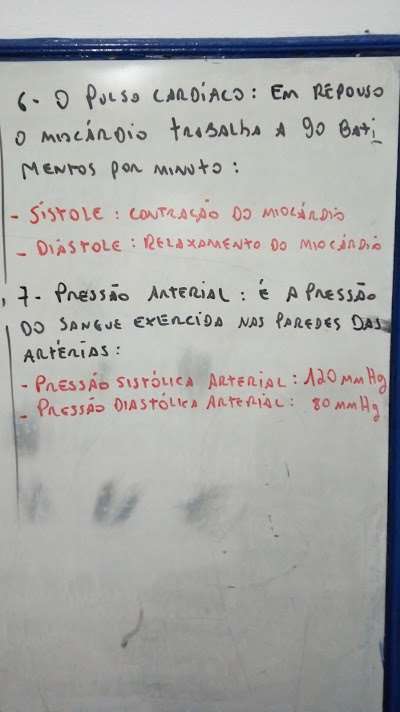 6- O PULSO CARDÍACO: EM REPOUSO
O MIOCÁRDIO TRABALHA A 90 BATI_
MENTOS POR MINUTO:
- SÍSTOLE: CONTRAÇÃO DO MIOCÁRDIO
- DIÁSTOLE: RELAXAMENTO DO MIOCÁRDIO
7- PRESSÃO ARTERIAL: É A PRESSÃO
DO SANGUE EXERCIDA NAS PAREDES DAS
ARTÉRIAS:
- PRESSÃO SISTÓLICA ARTERIAL: 120 mmHg
- PRESSÃO DIASTÓLICA ARTERIAL: 80 mmHg